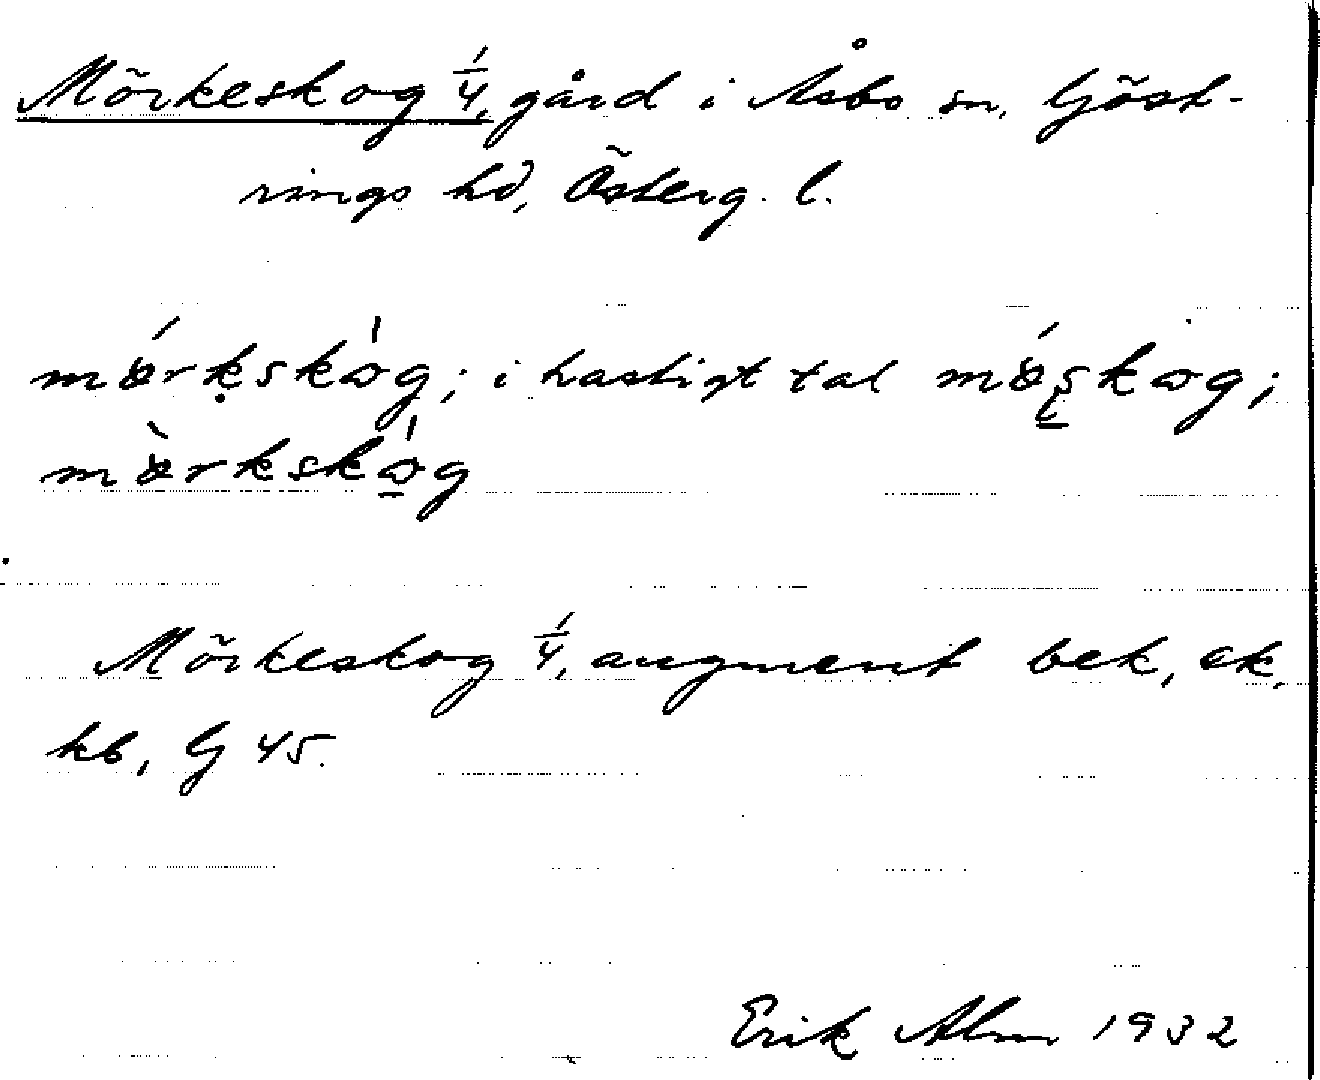 Mörkeskog 1/4, gård i Åsbo sn, Göst-
rings hd, Österg. l.
mœ́rkskòg; i hastigt tal mœ́skog;
mœ̀rkskòg
Mörkeskog 1/4, augment bek, ek.
kb, G 45.
Erik Alm 1932